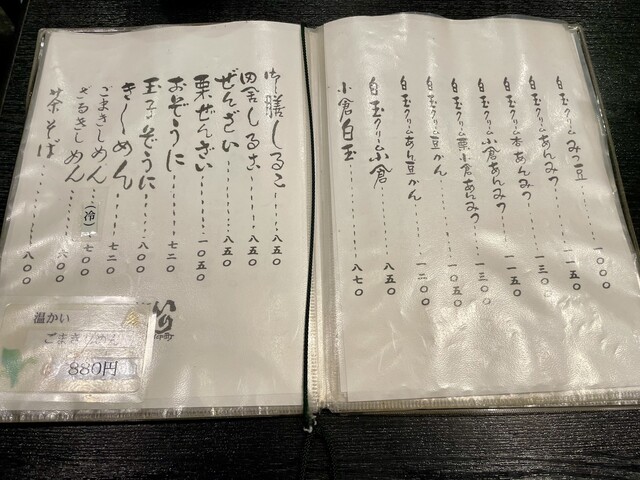 白玉クリームみつ豆......一〇〇〇
白玉クリームあんみつ......一一五〇
白玉クリーム杏あんみつ......一三〇〇
白玉クリーム小倉あんみつ......一一五〇
白玉クリーム栗小倉あんみつ......一三〇〇
白玉クリーム豆かん......一〇五〇
白玉クリームあん豆かん......一二〇〇
白玉クリーム小倉......八五〇
小倉白玉......八七〇
御膳しるこ......八五〇
田舎しるこ......八五〇
ぜんざい......八五〇
栗ぜんざい......一〇五〇
おぞうに......七二〇
玉子ぞうに......八〇〇
きしめん......七二〇
ごまきしめん(冷)...七〇〇
ざるきしめん......六〇〇
茶そば......八〇〇
温かい
ごまきしめん
880円